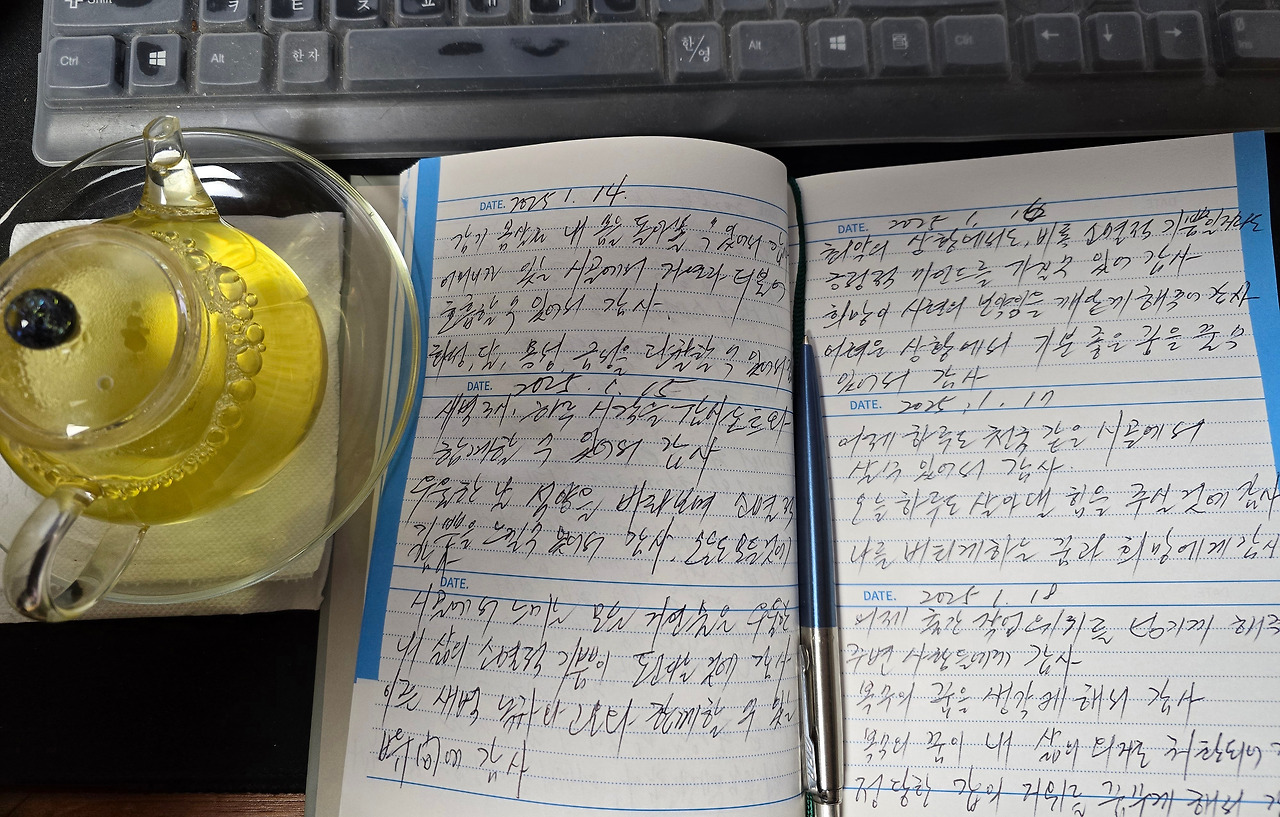 Shift
ㅋ
ㅌ
ㅊ
Ctrl
Alt
한자
한/영
Alt
Ctrl
←
↓
→
0
Ins
DATE. 2025 1. 14.
감기 몸살로 내 몸을 돌아볼 수 있어서 감
어머니가 있는 시골에서 자연과 더불어
호흡할 수 있어서 감사.
화성, 달, 목성, 금성을 관찰할 수 있어서
DATE. 2025. 1. 15
새벽 2시. 하루 시작을 감사노트와
함께할 수 있어서 감사
우울한 날 석양을 바라보며 소멸적
기쁨을 느낄 수 있어서 감사. 오늘도 모든것에
감사
DATE.
시골에서 느끼는 모든 자연들을 우울한
내 삶의 소멸적 기쁨이 도리 것에 감사
이른 새벽 녹차가 나와 함께할 수 있는
감사
DATE. 2025 1. 16
최악의 상황에서도, 비록 소멸적 기쁨일지라도
긍정적 마인드를 가질 수 있어 감사
희망이 시련의 번역임을 깨닫게 해주어 감사
어려운 상황에서 기분 좋은 꿈을 꿀 수
있어서 감사
DATE. 2025. 1. 17
어제 하루도 천국 같은 시골에서
살 수 있어서 감사.
오늘 하루도 살아낼 힘을 주실 것에 감사
나를 버티게하는 꿈과 희망에게 감사
DATE. 2025 1. 18
어제 출간 작업 예기를 해주
주변 사람들에게 감사
복수의 꿈을 생각케 해서 감사
복수의 꿈이 내 삶의 의지로 치환되어
정당한 값의 거위를 꿈꾸게 해서 감